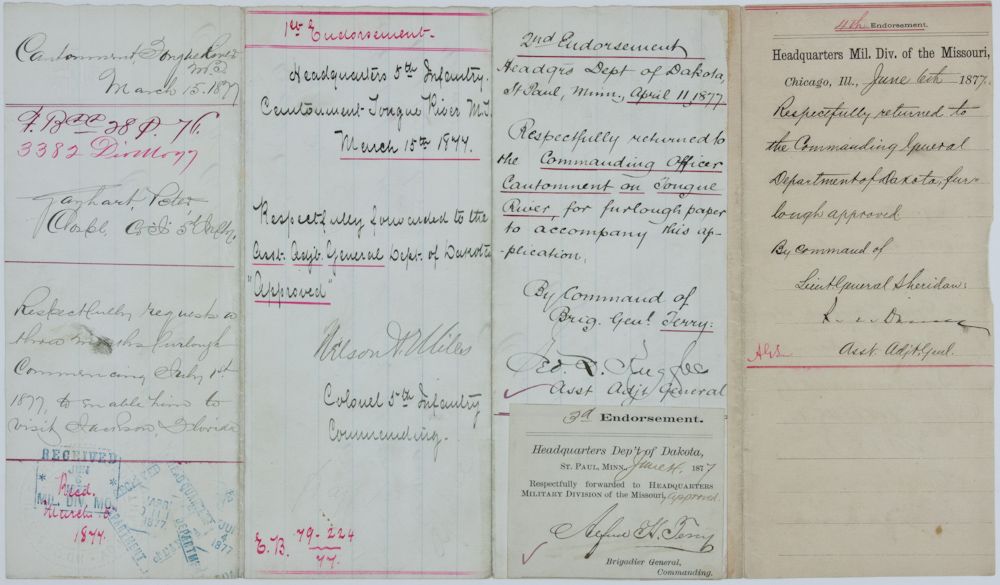 Cantonment, Tongue River
M.T.
March 15. 1877
3382 Div Mo 77
Peter
Corpl. Co. 5th Infty.
Respectfully requests a
three months furlough
Commencing July 1st
1877, to enable him to
visit Jackson, Florida
RECEIVED
JUN
6
MIL. DIV. MO.
Recd.
March
1877.
1877
1877
1st Endorsement.
Headquarters 5th Infantry.
Cantonment Tongue River M.T.
March 15th 1877.
Respectfully forwarded to the
Asst. Adjt. General Dept. of Dakota
"Approved"
Nelson A. Miles
Colonel 5th Infantry
Commanding.
E.B. 79-224
77.
2nd Endorsement
Headqrs Dept of Dakota,
St Paul, Minn., April 11, 1877
Respectfully returned to
the Commanding Officer
Cantonment on Tongue
River, for furlough paper
to accompany this ap-
-plication.
By Command of
Brig. Genl. Terry:
Geo. D. Ruggles
Asst Adjt General
3d Endorsement.
Headquarters Dep't of Dakota,
St. Paul, Minn., June 4, 1877
Respectfully forwarded to Headquarters
Military Division of the Missouri, approved.
Alfred H. Terry
Brigadier General,
Commanding.
4th Endorsement.
Headquarters Mil. Div. of the Missouri,
Chicago, Ill., June 6th 1877.
Respectfully returned to
the Commanding General
Department of Dakota, fur-
lough approved
By command of
Lieut General Sheridan:
Asst. Adjt. Genl.